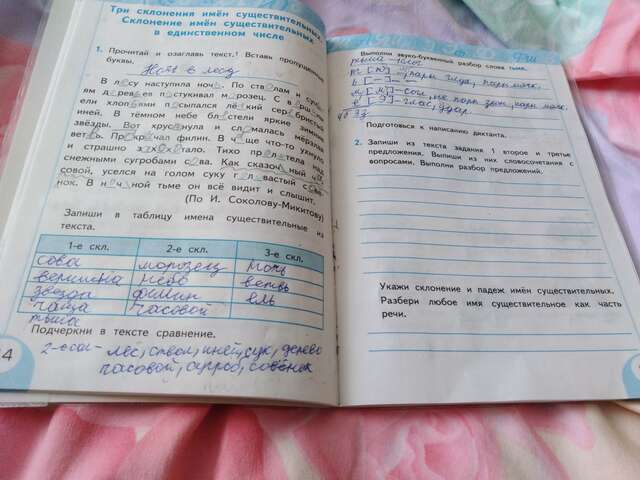 Три склонения имён существительных.
Склонение имён существительных
в единственном числе
1. Прочитай и озаглавь текст.¹ Вставь пропущенные
буквы.
Ночь в лесу
В лесу наступила ночь. По стволам и сучь-
ям деревьев постукивал морозец. С вершины
ели хлопьями посыпался лёгкий серебристый
иней. В тёмном небе блестели яркие зимние
звёзды. Вот хрустнула и сломалась мёрзлая
ветвь. Прокричал филин. В чаще что-то ухнуло
и страшно захохотало. Тихо пролетела над
снежными сугробами сова. Как сказочный часо-
совой, уселся на голом суку головастый совё-
нок. В ночной тьме он всё видит и слышит.
(По И. Соколову-Микитову)
Запиши в таблицу имена существительные из
текста.
1-е скл. 2-е скл. 3-е скл.
сова морозец ночь
вершина небо ветвь
звезда филин ель
чаща часовой
тьма
Подчеркни в тексте сравнение.
2-е скл - лес, ствол, иней, сук, дерево
часовой, сугроб, совёнок
4
Выполни звуко-буквенный разбор слова тьме.
Подготовься к написанию диктанта.
2. Запиши из текста задания 1 второе и третье
предложения. Выпиши из них словосочетания с
вопросами. Выполни разбор предложений.
Укажи склонение и падеж имён существительных.
Разбери любое имя существительное как часть
речи.